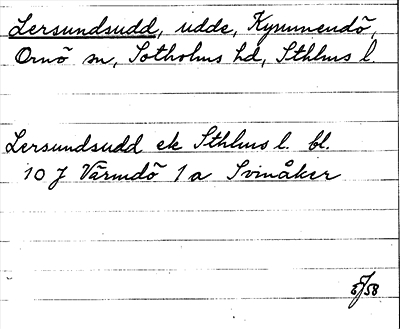 Lersundsudd, udde, Kymmendö,
Ornö sn, Sotholms hd, Sthlms l.
Lersundsudd ek Sthlms l. bl.
10 J Värmdö 1a Svinåker
5/58